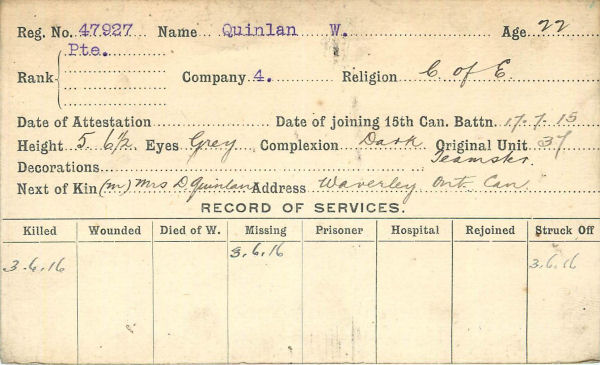 Reg. No. 47927 Name Quinlan W. Age 22
Pte.
Rank Company 4. Religion C. of E.
Date of Attestation Date of joining 15th Can. Battn. 17.7.15
Height 5. 6½ Eyes Grey Complexion Dark Original Unit 37
Decorations Teamster.
Next of Kin (m) Mrs D. Quinlan Address Waverley Ont. Can
RECORD OF SERVICES.
Killed Wounded Died of W. Missing Prisoner Hospital Rejoined Struck Off
3.6.16 3.6.16 3.6.16